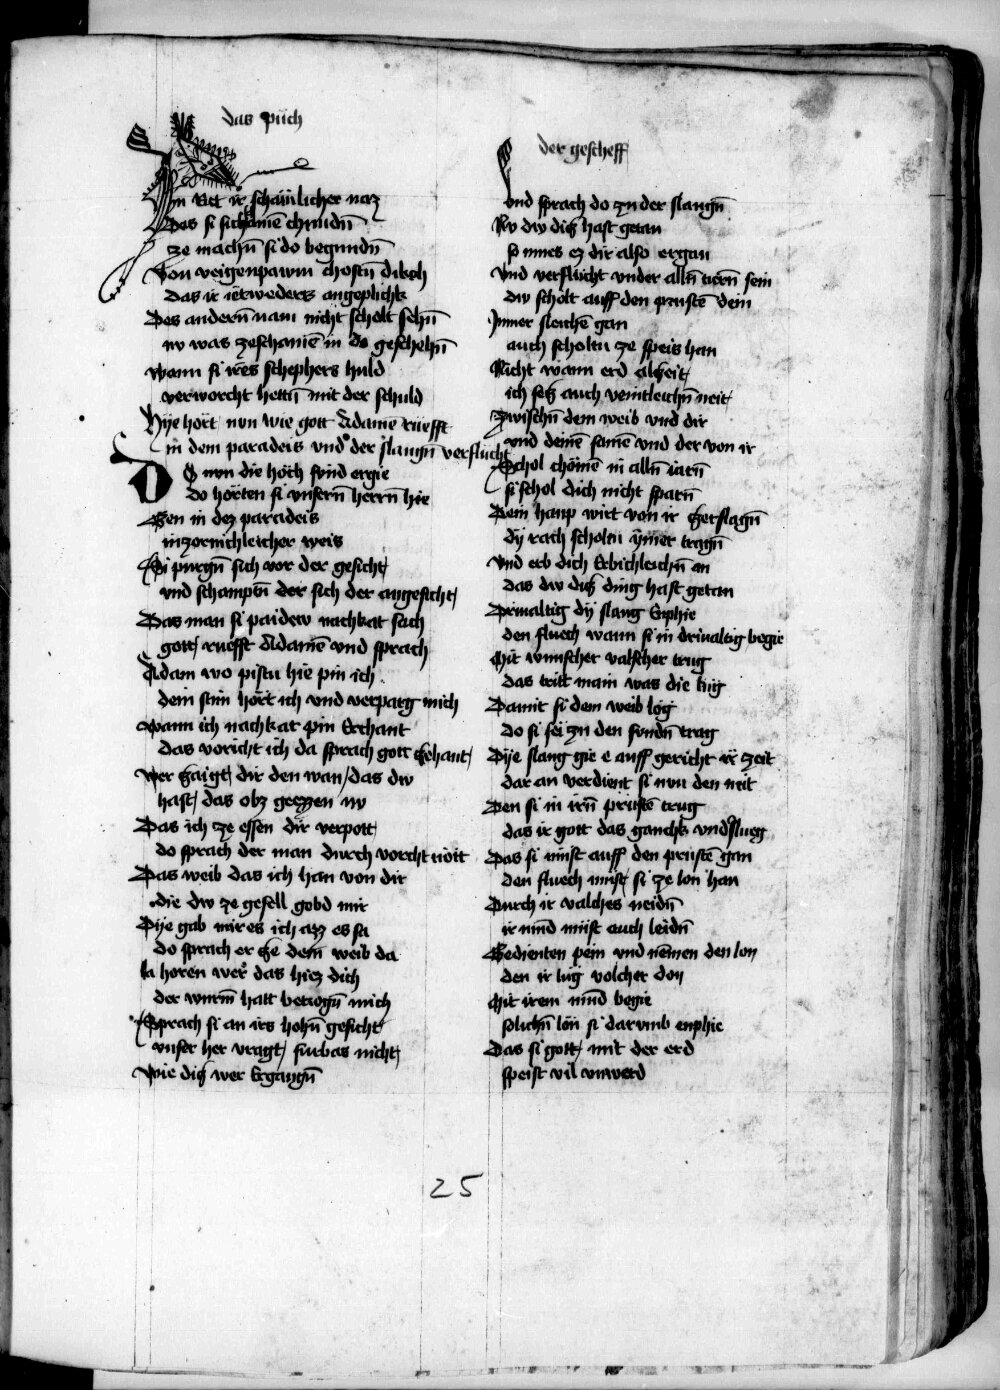 das püch
Im Riet ir schämlicher narz
Das si sich kainē chruidn̄
ze machn̄ si do begundn̄
Von veigenpawm chostn̄ dikch
das ir ietweders angeplickt
Des andern̄ nam nicht scholt sehn̄
nv was zeschanē in do geschehn̄
wann si irēs schephers huld
verworcht hettn̄ mit der schuld
Hÿe hört nvn wie gott Adamē rüefft
in dem paradeis vnd der slangn̄ verflücht
Do nvn die hoch sund ergie
do hörten si vnsern̄ herrn̄ hie
Gen in dez paradeis
in zornichleicher weis
Si purgn̄ sich vor der gesicht
vnd schamptn̄ der sich der angesicht
Das man si paidew nachkat sach
gott ruefft Adamē vnd sprach
Adam wo pistu hie pin ich
dein stim hört ich vnd verparg mich
wann ich nachkat pin Erchant
das voricht ich da sprach gott zehant
wer zaigt dir den wan das dw
hast das obz geezzen nv
Das ich ze essen dir verpott
do sprach der man durch vorcht nött
Das weib das ich han von dir
die dw ze gesell gobd mir
Dÿe gab mir es ich azz es sa
do sprach er ze dem weib da
la horen wer das hiez dich
der wurm̄ hatt betrogn̄ mich
Sprach si an irs hohn̄ gesicht
vnser her vragt furbas nicht
Wie diz wer Ergangn̄
der gescheff
Vnd sprach do zu der slangn̄
Nv dw diz hast getan
so mues ez dir also ergan
Vnd verflücht vnder alln̄ tiern̄ sein
dw scholt auff den prustē dein
Immer sleichē gan
auch scholtu ze speis han
Nicht wann erd alzeit
ich sez auch veintleichn̄ neit
zwischn̄ dem weib vnd dir
vnd deinē samē vnd der von ir
Schol chömē in alln̄ iarn̄
si schol dich nicht sparn̄
Dein haup wirt von ir zerslagn̄
dÿ rach scholtu ÿmer tragn̄
Vnd erb dich Erbichleichn̄ an
das dw diz ding hast getan
Drivaltig dÿ slang Enphie
den fluech wann si in drivaltig begie
Mit wunscher valscher trug
das tritt main was die lüg
Damit si dem weib log
do si sei zu den sundn̄ trag
Dÿe slang gie e auff gericht ir zeit
dar an verdient si nvn den neit
Den si in irn̄ prustē trug
das ir gott das ganckh vndslueg
Das si müst auff den prustē gan
den fluech müst si ze lon han
Durch ir valsches neidn̄
ir mund müst auch leidn̄
Gedienten pein vnd nēmen den lon
den ir lug volcher don
Mit irem mund begie
solichn̄ lon si darumb enphie
Das si gott mit der erd
speist vil vnwerd
25